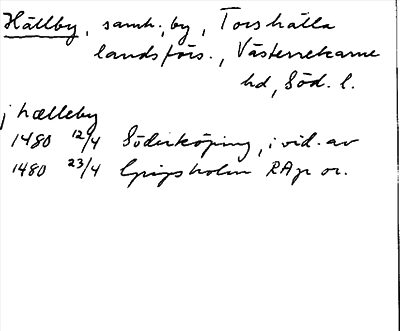 Hällby, samh., by, Torshälla
landsförs., Västerrekarne
hd, Söd. l.
j hælleby
1480 12/4 Söderköping, i vid. av
1480 23/4 Gripsholm RAp or.